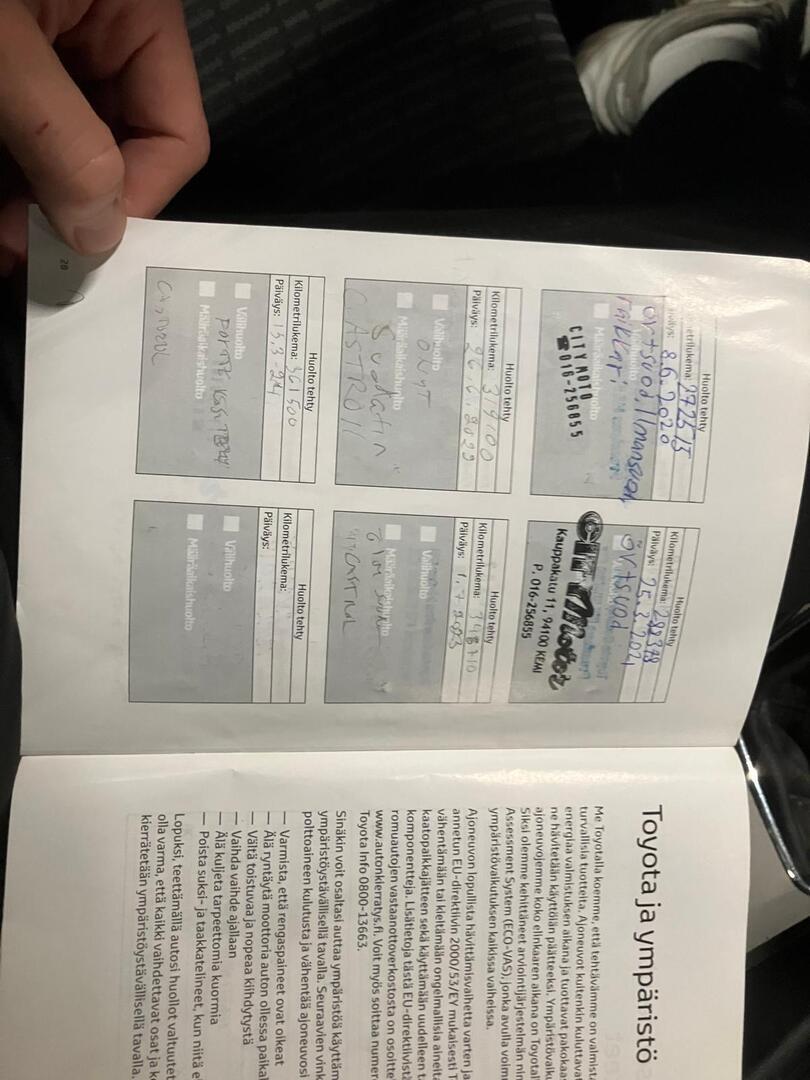 Huolto tehty
metrilukema: 272515
Päiväys: 8.6.2020
öv+tsuod Ilmansuod
CITY MOTO
☎016-256855
Huolto tehty
Kilometrilukema:
Päiväys: 25.3.2021
öv+tsuod
City Motor
Kauppakatu 11, 94100 KEMI
P. 016-256855
Huolto tehty
Kilometrilukema: 319100
Päiväys:
Välihuolto
Määräaikaishuolto
Suodatin
CASTROL
Huolto tehty
Kilometrilukema:
Päiväys: 1.7
Välihuolto
Määräaikaishuolto
CASTROL
Huolto tehty
Kilometrilukema: 361500
Päiväys: 13.3-24
Välihuolto
Määräaikaishuolto
Huolto tehty
Kilometrilukema:
Päiväys:
Välihuolto
Määräaikaishuolto
28
Toyota ja ympäristö
Me Toyotalla koemme, että tehtävämme on valmist
turvallisia tuotteita. Ajoneuvot kuitenkin kuluttavat
energiaa valmistuksen aikana ja tuottavat pakokaa
ne hävitetään käyttöiän päätteeksi. Ympäristövaiku
ajoneuvojemme koko elinkaaren aikana on Toyotal
Siksi olemme kehittäneet arviointijärjestelmän nim
Assessment System (ECO-VAS), jonka avulla voim
ympäristövaikutuksen kaikissa vaiheissa.
Ajoneuvon lopullista hävittämisvaihetta varten ja
annetun EU-direktiivin 2000/53/EY mukaisesti T
vähentämään tai kieltämään ongelmallisia aineita
kaatopaikkajätteen sekä käyttämään uudelleen t
komponentteja. Lisätietoja tästä EU-direktiivistä
romuautojen vastaanottoverkostosta on osoitte
www.autonkierratys.fi. Voit myös soittaa numero
Toyota Info 0800-13663.
Sinäkin voit osaltasi auttaa ympäristöä käyttäm
ympäristöystävällisellä tavalla. Seuraavien vink
polttoaineen kulutusta ja vähentää ajoneuvosi
— Varmista, että rengaspaineet ovat oikeat
— Älä ryntäytä moottoria auton ollessa paikal
— Vältä toistuvaa ja nopeaa kiihdytystä
— Vaihda vaihde ajallaan
— Älä kuljeta tarpeettomia kuormia
— Poista suksi- ja taakkatelineet, kun niitä e
Lopuksi, teettämällä autosi huollot valtuutet
olla varma, että kaikki vaihdettavat osat ja ko
kierrätetään ympäristöystävällisellä tavalla.